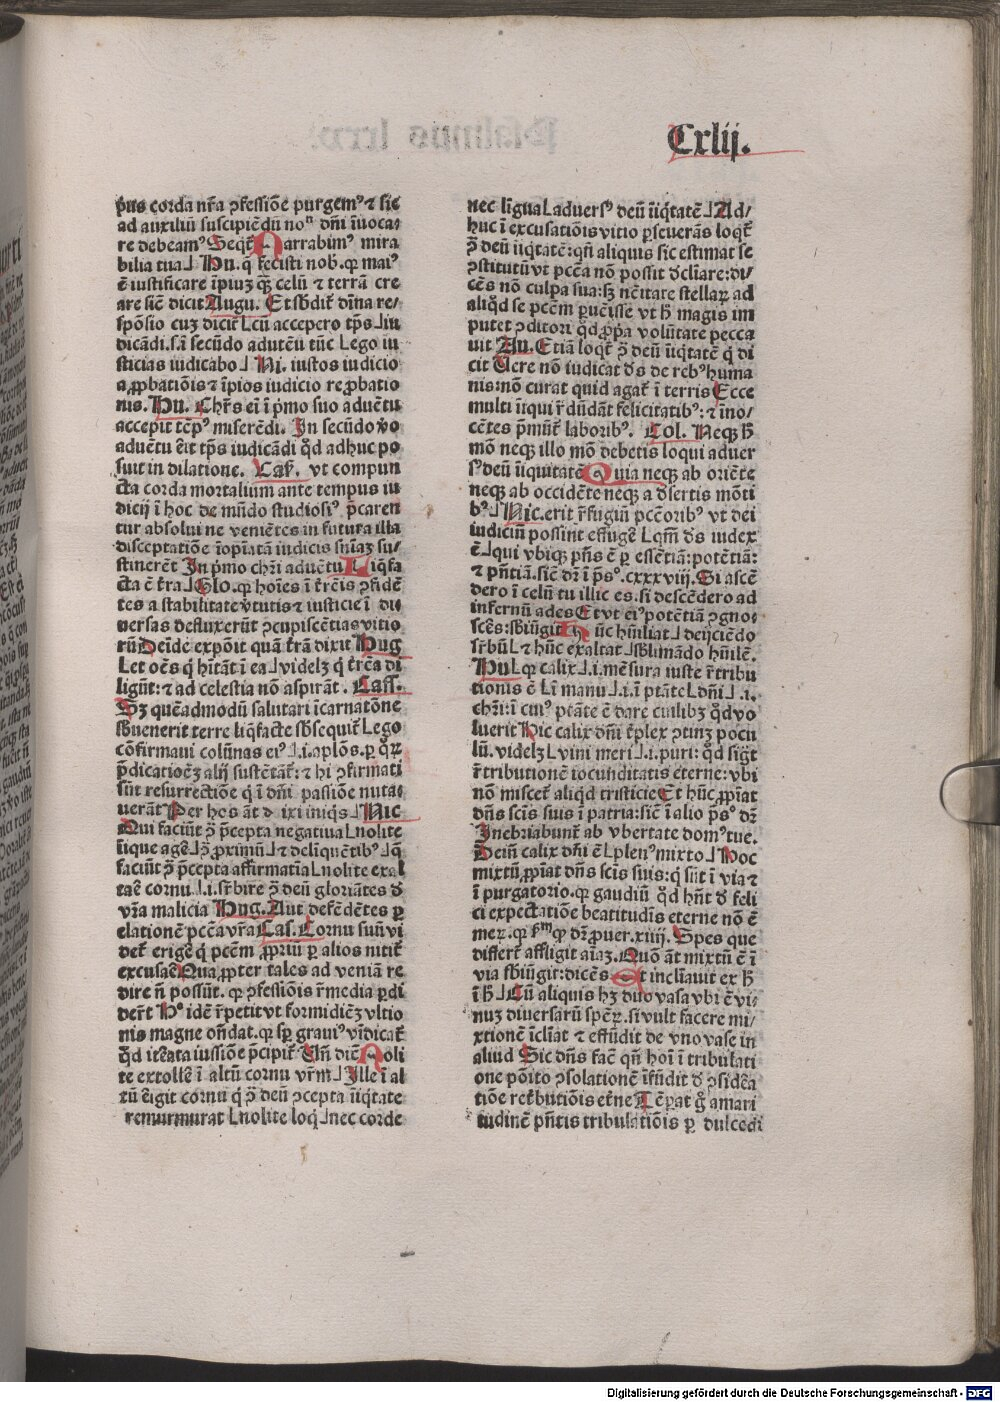 Cxlij.
p̄us corda nr̃a ꝓfessiõe purgemꝰ ⁊ sic
ad auxiliũ suscipiẽdũ noⁿ dñi ĩuoca/
re debeamꝰ Seqt̃ Narrabimꝰ mira
bilia tua⅃ Hu. q̃ fecisti nob̃. qꝫ maiꝰ
ẽ iustificare ĩpiuꝫ qꝫ celũ ⁊ terrã cre
are sic̃ dicit Augu. Et sb̃dit̃ dña re/
spõsio cuꝫ dicit̃ Lcũ accepero tp̃s⅃iu
dicãdi. s̃ã secũdo adutẽu tũc Lego iu
sticias iudicabo⅃Ni. iustos iudicio
aꝓbatiõis ⁊ ĩpios iudicio reꝓbatio
nis. Hu. Chr̃s ei ĩ p̃mo suo aduẽtu
accepit tẽpꝰ miserẽdi. In secũdo ṽo
aduẽtu ẽit tp̃s iudicãdi qd̃ adhuc po
suit in dilatione. Cas̃. vt compun
cta corda mortalium ante tempus iu
dicij ĩ hoc de mũdo studiosiꝰ p̃caren
tur absolui ne veniẽtes in futura illa
disceptatiõe ĩopĩatã iudicis sñiaꝫ su/
stinerẽt In p̃mo chr̃i aduẽtu Liq̃fa
cta ẽ t̃ra⅃Glo. qꝫ hoĩes ĩ t̃reĩs ꝯfidẽ
tes a stabilitate ṽtutis ⁊ iusticie ĩ di
uersas defluxerũt ꝯcupiscẽtias vitio
rũ Deĩde expõit quã t̃rã dixit Hug
Let oẽs q̃ hĩtãt ĩ ea⅃videlꝫ q̃ t̃rẽa di
ligũt: ⁊ ad celestia nõ aspirãt. Cass.
Sꝫ quẽadmodũ salutari ĩcarnatõne
sb̃uenerit terre liq̃facte sb̃sequit̃ Lego
cõfirmaui colũnas eiꝰ⅃.i. aplõs. ꝑ qꝝ
p̃dicatioẽꝫ alij sustẽtãt̃: ⁊ hi ꝯfirmati
sũt resurrectiõe q̃ ĩ dñi passiõe nuta/
uerãt Per hos ãt dixi iniqis⅃Nic
Qui faciũt ꝯ̃ p̃cepta negatiua Lnolite
ĩique agẽ⅃ꝯ̃ ꝓximũ⅃⁊ delĩquẽtibꝰ⅃q̃
faciũt ꝯ̃ p̃cepta affirmatiãLnolite exal
taẽ cornu⅃.i. sr̃bire ꝯ̃ deũ gloriãtes d̃
vr̃a malicia Hug. Aut defẽdẽtes ꝑ
elationẽ pccã vr̃a Cas. Cornu suũ vi
det̃ erigẽ q̃ pccm̃ ꝓpriũ ꝑ alios nitit̃
excusaẽ Qua ꝓpter tales ad veniã re
dire ñ possũt. qꝫ ꝯfessiõis r̃media ꝑdi
derĩt Hᵒ idẽ r̃petit vt formidiẽꝫ vltio
nis magne oñdat. qꝫ sꝑ grauiꝰ vĩdicat̃
qd̃ itẽata iussiõe p̃cipit̃ Vñ diẽ Noli
te extollẽ ĩ altũ cornu vr̃m⅃Ille ĩ al
tũ ẽigit cornu q̃ ꝯ̃ deũ ꝯcepta ĩiq̃tate
remurmurat Lnolite loq̃⅃nec corde
nec lĩgua Laduersꝰ deũ ĩiq̃tatẽ⅃Ad/
huc ĩ excusatiõis vitio ꝑseuerãs loqt̃
ꝯ̃ deũ ĩiq̃tatẽ: qñ aliquis sic estimat se
ꝯstitutũ vt pccã nõ possit dclĩare: di/
cẽs nõ culpa sua: sꝫ nc̃itate stellaꝝ ad
aliqd̃ se pccm̃ ꝑueĩsse vt h̃ magis im
putet ꝯditori qd̃ ꝓp̃a volũtate pecca
uit Au. Etiã loqt̃ ꝯ̃ deũ ĩiq̃tatẽ q̃ di
cit Uere nõ iudicat ds̃ de rebꝰ huma
nis: nõ curat quid agat̃ ĩ terris Ecce
multi ĩiqui r̃dũdãt felicitatibꝰ: ⁊ ĩno/
cẽtes p̃mũt̃ laboribꝰ. Col. Neqꝫ h̃
mõ neqꝫ illo mõ debetis loqui aduer
sꝰ deũ ĩiquitatẽ Quia neqꝫ ab oriẽte
neqꝫ ab occidẽte neqꝫ a dsertis mõti
bꝰ⅃Nic. erit r̃fugiũ pccõribꝰ vt dei
iudiciũ possint effugẽ Lqm̃ ds̃ iudex
ẽ⅃qui vbiqꝫ p̃ñs ẽ ꝑ essẽtiã: potẽtiã:
⁊ p̃ñtiã. sic̃ dr̃ ĩ p̃sꝰ. cxxxviij. Si ascẽ
dero ĩ celũ tu illic es. si descẽdero ad
infernũ ades Et vt eiꝰ potẽtiã ꝯgno/
scẽs: sb̃iũgit Hũc hũiliat⅃deijciẽdo
sr̃bũL⁊ hũc exaltat⅃sb̃limãdo hũilẽ.
HuLqꝫ calix⅃.i. mẽsura iuste r̃tribu
tionis ẽ Lĩ manu⅃.i. ĩ ptãte Ldñi⅃.i.
chr̃i: ĩ cuiꝰ ptãte ẽ dare cuilibꝫ qd̃ vo
luerit Hic calix dñi t̃plex ꝯtinꝫ pocu
lũ. videlꝫ Lvini meri⅃.i. puri: qd̃ sigt̃
r̃tributionẽ iocunditatis eterne: vbi
nõ miscet̃ aliqd̃ tristicie Et hũc ꝓpĩat
dñs scĩs suis ĩ patria: sic̃ ĩ alio p̃sꝰ dr̃
Inebriabunt̃ ab vbertate domꝰ tue.
Deiñ calix dñi ẽ Lplenꝰ mixto⅃Hoc
mixtũ ꝓpĩat dñs scĩs suis: q̃ sũt ĩ via ⁊
ĩ purgatorio. qꝫ gaudiũ qd̃ hñt d̃ feli
ci expectatiõe beatitudĩs eterne nõ ẽ
meꝝ. qꝫ ẽᵐ qꝫ dr̃ ꝓuer. xiiij. Spes que
differt̃ affligit aĩaꝫ. Quõ ãt mixtũ ẽ ĩ
via sb̃iũgit: dicẽs Et inclĩauit ex h̃
ĩ h̃⅃Cũ aliquis hꝫ duo vasa vbi ẽ vi/
nuꝫ diuersarũ spẽꝝ. si vult facere mi/
xtionẽ ĩclĩat ⁊ effũdit de vno vase in
aliud Sic dñs fac̃ qñ hoĩ ĩ tribulati
one põito ꝯsolationẽ ĩfũdit d̃ ꝯsidẽa
tiõe ret̃butiõis et̃ne Tẽꝑat g̃ amari
tudinẽ p̃ñtis tribulatiõis ꝑ dulcedi
Digitalisierung gefördert durch die Deutsche Forschungsgemeinschaft - DFG